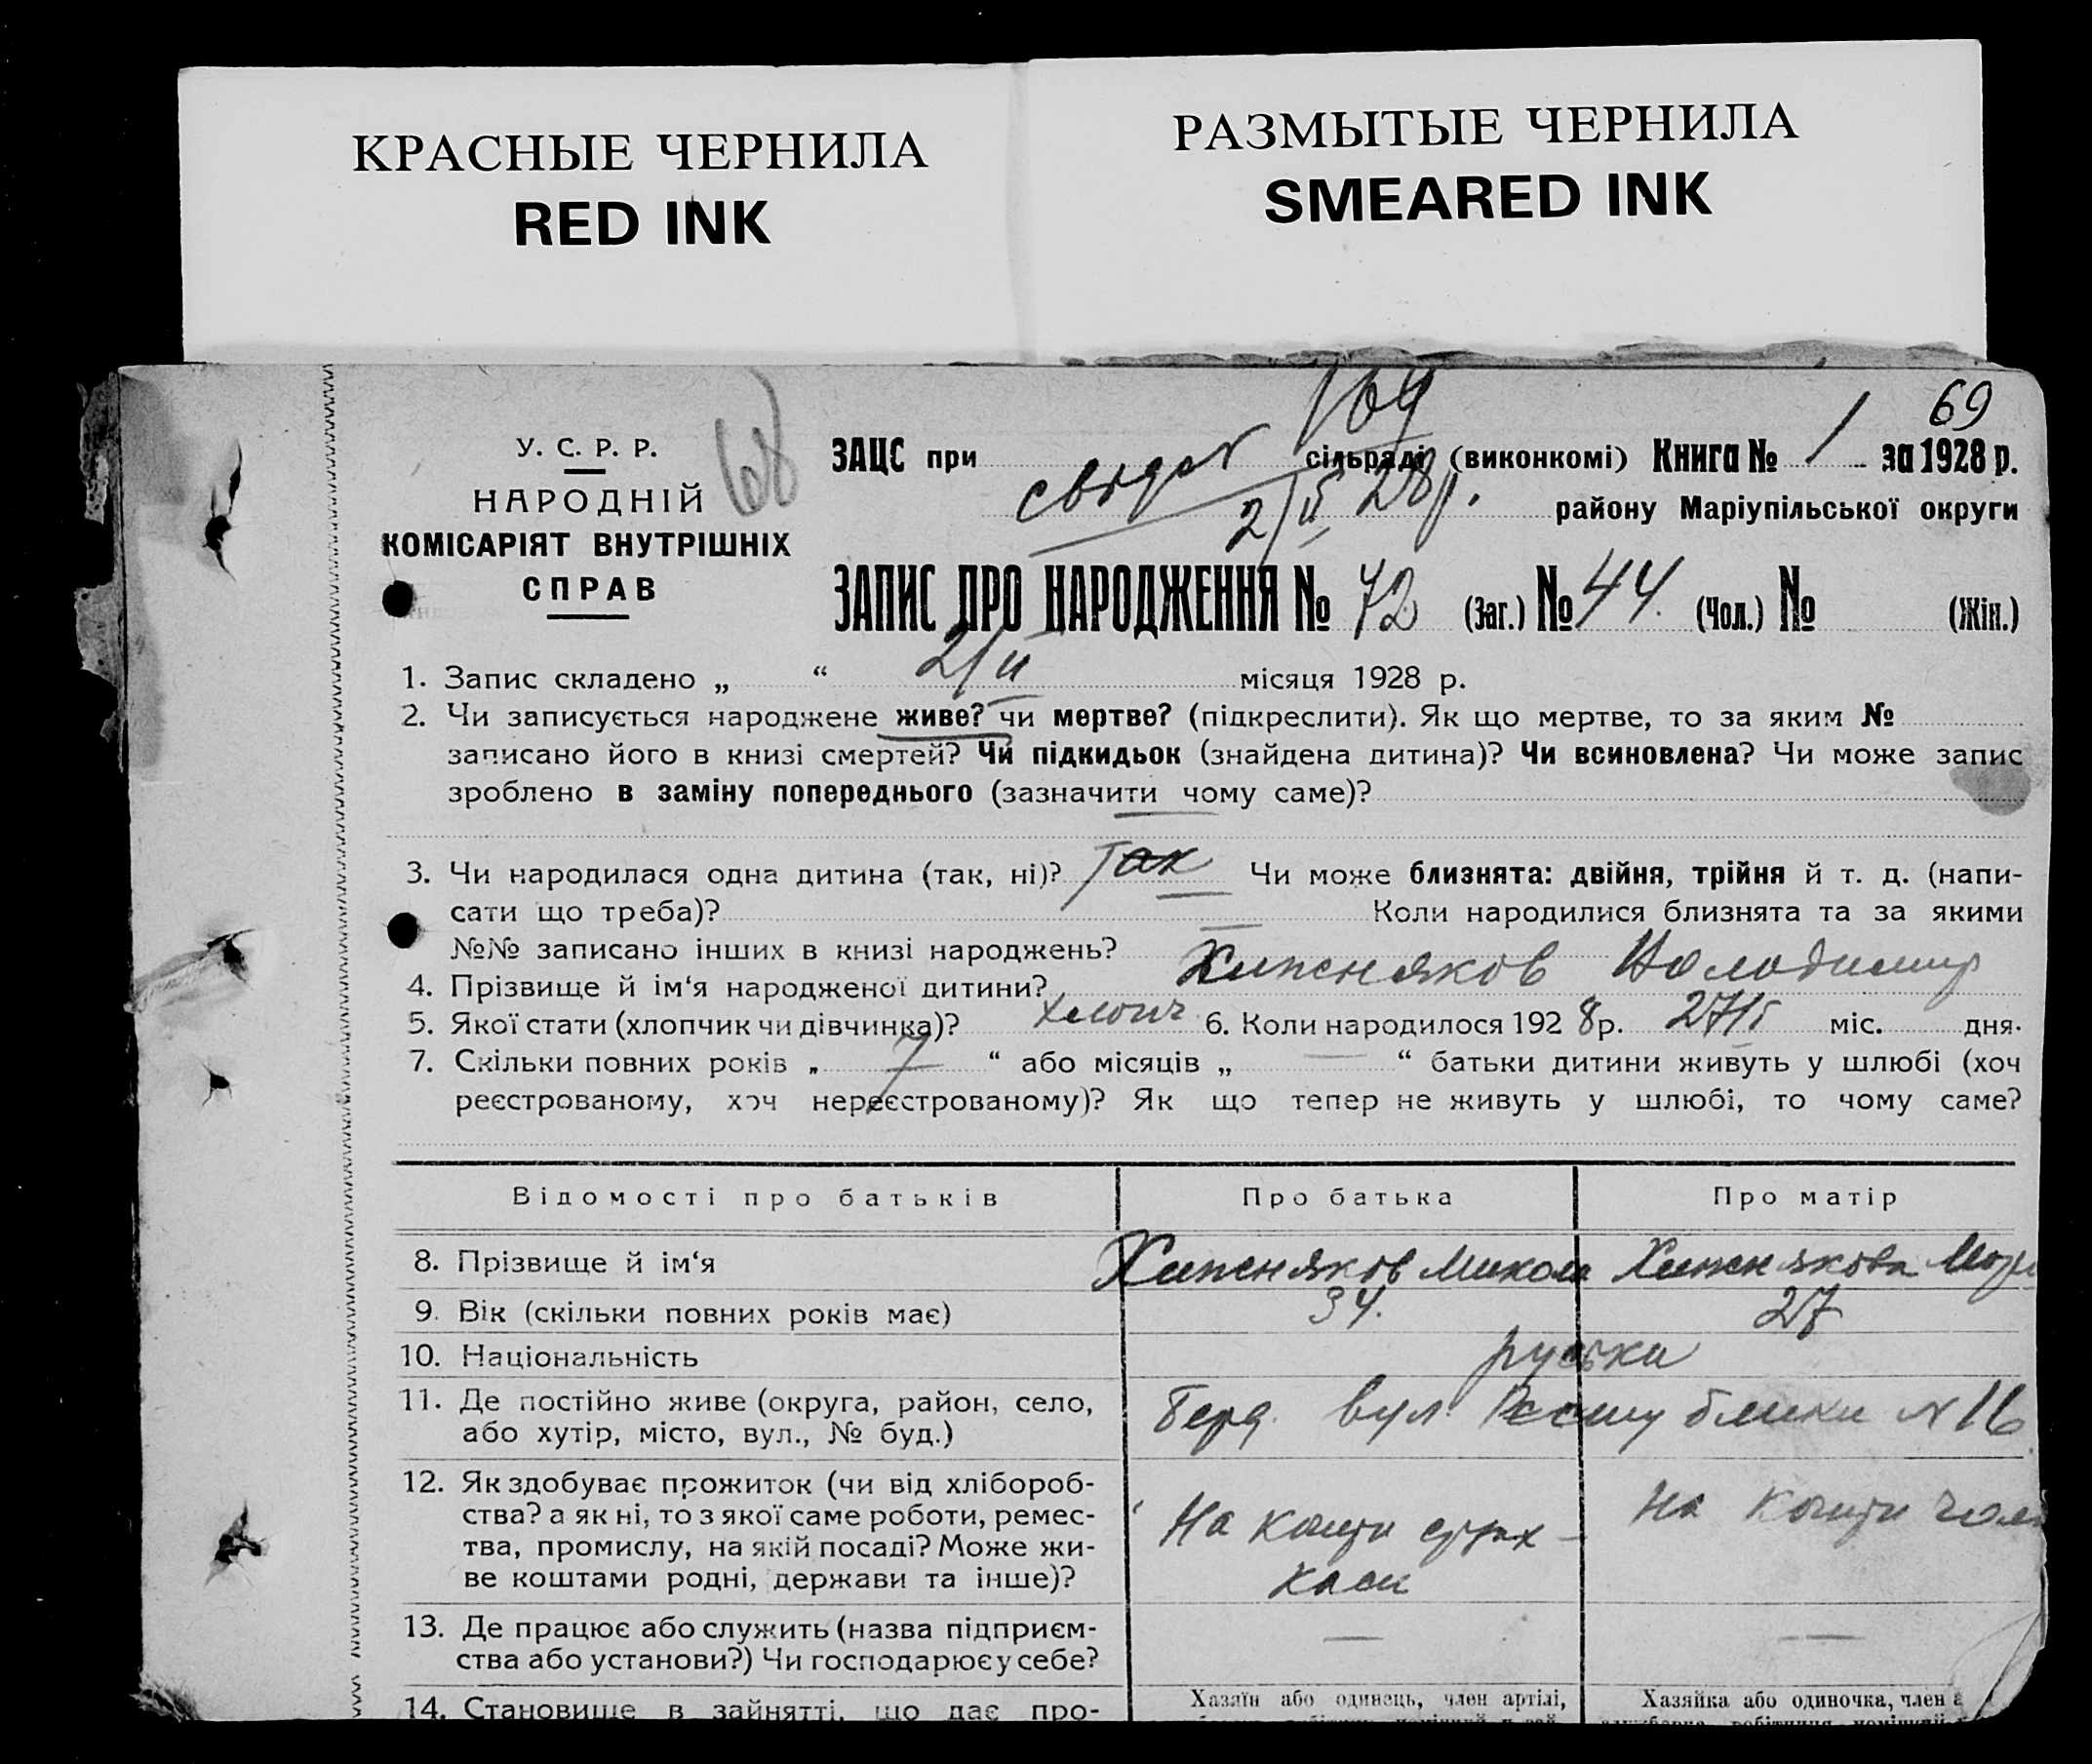 КРАСНЫЕ ЧЕРНИЛА
RED INK
РАЗМЫТЫЕ ЧЕРНИЛА
SMEARED INK
69
68
169
У. С. Р. Р.
НАРОДНІЙ
КОМІСАРІЯТ ВНУТРІШНІХ
СПРАВ
ЗАЦС при сільраді (виконкомі) Книга № 1 за 1928 р.
2/II 28р. району Маріупільської округи
ЗАПИС ПРО НАРОДЖЕННЯ № 72 (Заг.) № 44. (Чол.) № (Жін.)
1. Запис складено „ “ 2/II місяця 1928 р.
2. Чи записується народжене живе? чи мертве? (підкреслити). Як що мертве, то за яким №
записано його в книзі смертей? Чи підкидьок (знайдена дитина)? Чи всиновлена? Чи може запис
зроблено в заміну попереднього (зазначити чому саме)?
3. Чи народилася одна дитина (так, ні)? Так Чи може близнята: двійня, трійня й т. д. (напи-
сати що треба)? Коли народилися близнята та за якими
№№ записано інших в книзі народжень?
4. Прізвище й ім‘я народженої дитини? Хижняков Володимир
5. Якої стати (хлопчик чи дівчинка)? хлопч 6. Коли народилося 1928 р. 27/I міс. дня.
7. Скільки повних років „ 7 “ або місяців „ — “ батьки дитини живуть у шлюбі (хоч
реєстрованому, хоч нереєстрованому)? Як що тепер не живуть у шлюбі, то чому саме?
Відомості про батьків Про батька Про матір
8. Прізвище й ім‘я Хижняков Микола Хижнякова
9. Вік (скільки повних років має) 34. 27
10. Національність руська
11. Де постійно живе (округа, район, село,
або хутір, місто, вул., № буд.)
Берд. вул. Республики № 16
12. Як здобуває прожиток (чи від хлібороб-
ства? а як ні, то з якої саме роботи, ремес-
тва, промислу, на якій посаді? Може жи-
ве коштами родні, держави та інше)?
На кошти страх-
каси
На кошти чол
13. Де працює або служить (назва підприєм-
ства або установи?) Чи господарює у себе?
— —
14. Становище в зайнятті, що дає про-
Хазяїн або одинець, член артілі,
Хазяйка або одиночка, член